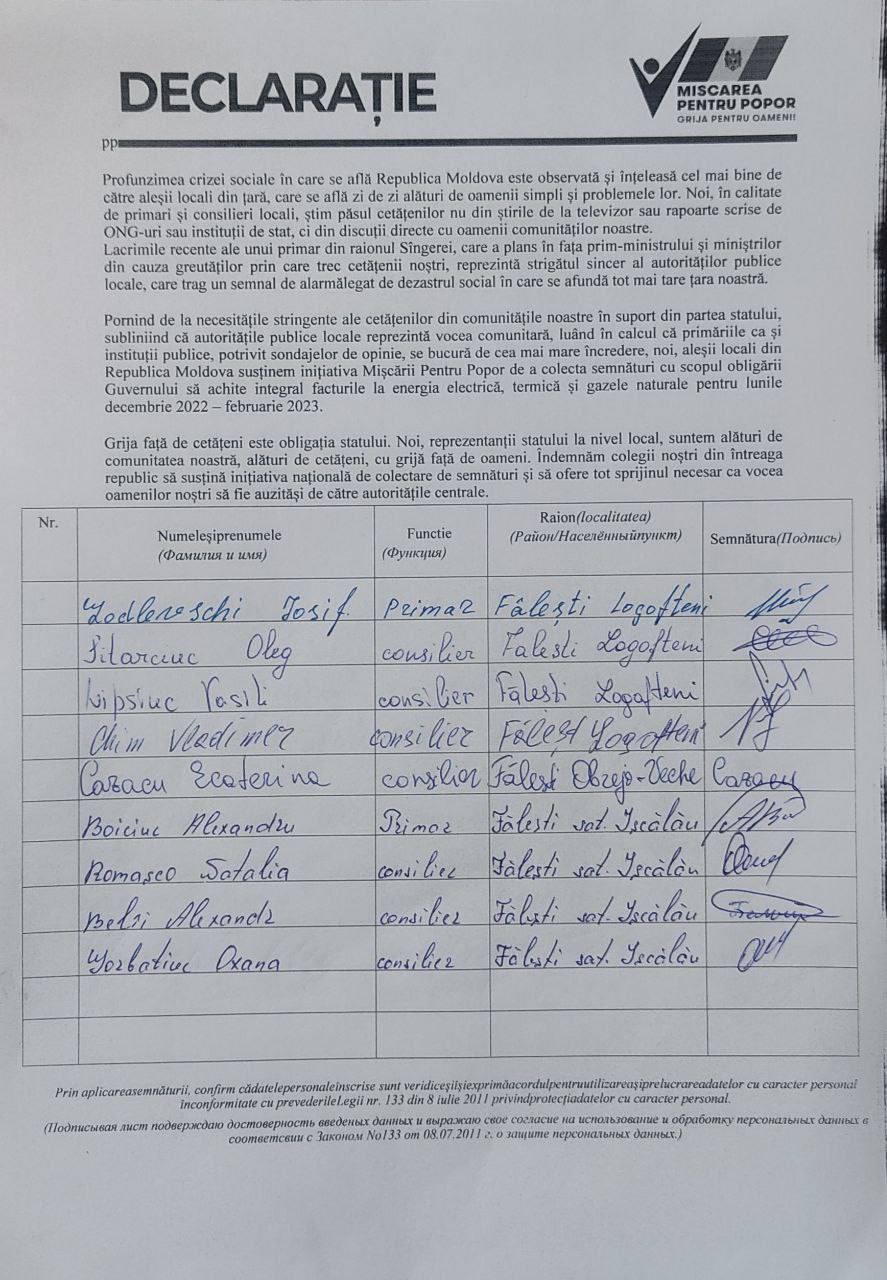 DECLARAȚIE
MISCAREA
PENTRU POPOR
GRIJA PENTRU OAMENI!
pp
Profunzimea crizei sociale în care se află Republica Moldova este observată și înțeleasă cel mai bine de
către aleșii locali din țară, care se află zi de zi alături de oamenii simpli și problemele lor. Noi, în calitate
de primari și consilieri locali, știm păsul cetățenilor nu din știrile de la televizor sau rapoarte scrise de
ONG-uri sau instituții de stat, ci din discuții directe cu oamenii comunităților noastre.
Lacrimile recente ale unui primar din raionul Sîngerei, care a plans în fața prim-ministrului și miniștrilor
din cauza greutăților prin care trec cetățenii noștri, reprezintă strigătul sincer al autorităților publice
locale, care trag un semnal de alarmălegat de dezastrul social în care se afundă tot mai tare țara noastră.
Pornind de la necesitățile stringente ale cetățenilor din comunitățile noastre în suport din partea statului,
subliniind că autoritățile publice locale reprezintă vocea comunitară, luând în calcul că primăriile ca și
instituții publice, potrivit sondajelor de opinie, se bucură de cea mai mare încredere, noi, aleșii locali din
Republica Moldova susținem inițiativa Mișcării Pentru Popor de a colecta semnături cu scopul obligării
Guvernului să achite integral facturile la energia electrică, termică și gazele naturale pentru lunile
decembrie 2022 – februarie 2023.
Grija față de cetățeni este obligația statului. Noi, reprezentanții statului la nivel local, suntem alături de
comunitatea noastră, alături de cetățeni, cu grijă față de oameni. Îndemnăm colegii noștri din întreaga
republic să susțină inițiativa națională de colectare de semnături și să ofere tot sprijinul necesar ca vocea
oamenilor noștri să fie auzităși de către autoritățile centrale.
Nr. Numeleșiprenumele Functie Raion(localitatea) Semnătura(Подпись)
(Фамилия и имя) (Функция) (Район/Населённыйпункт)
Iosif Primar Fălești Logofteni
Oleg consilier Falesti Logofteni
Vasili consilier Fălesti Logofteni
Chim Vladimer consilier Fălești Logofteni
Cazacu Ecaterina consilier Fălesti Obrejo-Veche Cazacu
Boiciuc Alexandru Primar Fălesti sat. Iscălău
Romasco Natalia consilier Fălesti sat. Iscălău
Alexandr consilier Fălesti sat. Iscălău
Gorbatiuc Oxana consilier Fălesti sat. Iscălău
Prin aplicareasemnăturii, confirm cădatelepersonaleînscrise sunt veridiceșiîșiexprimăacordulpentruutilizareașiprelucrareadatelor cu caracter personal
înconformitate cu prevederileLegii nr. 133 din 8 iulie 2011 privindprotecțiadatelor cu caracter personal.
(Подписывая лист подверждаю достоверность введеных данных и выражаю свое согласие на использование и обработку персональных данных в
соответсвии с Законом No133 от 08.07.2011 г. о защите персональных данных.)